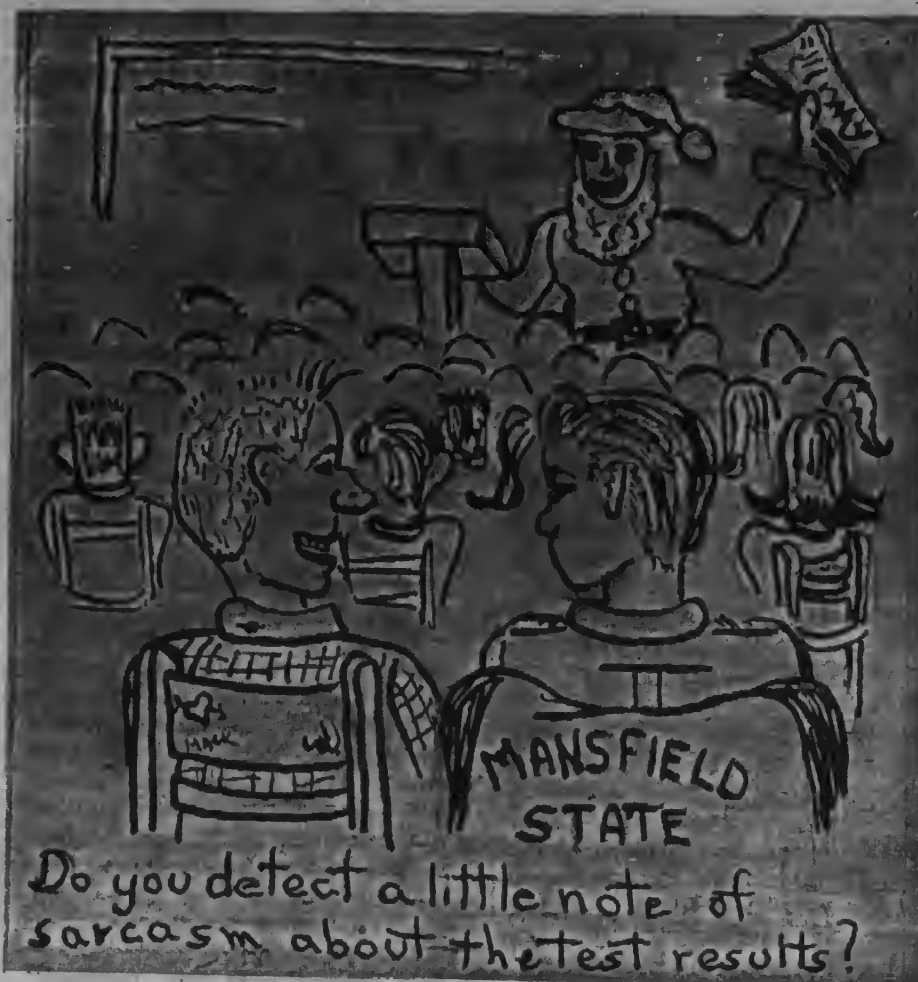 MANSFIELD
STATE
Do you detect a little note of
sarcasm about the test results?